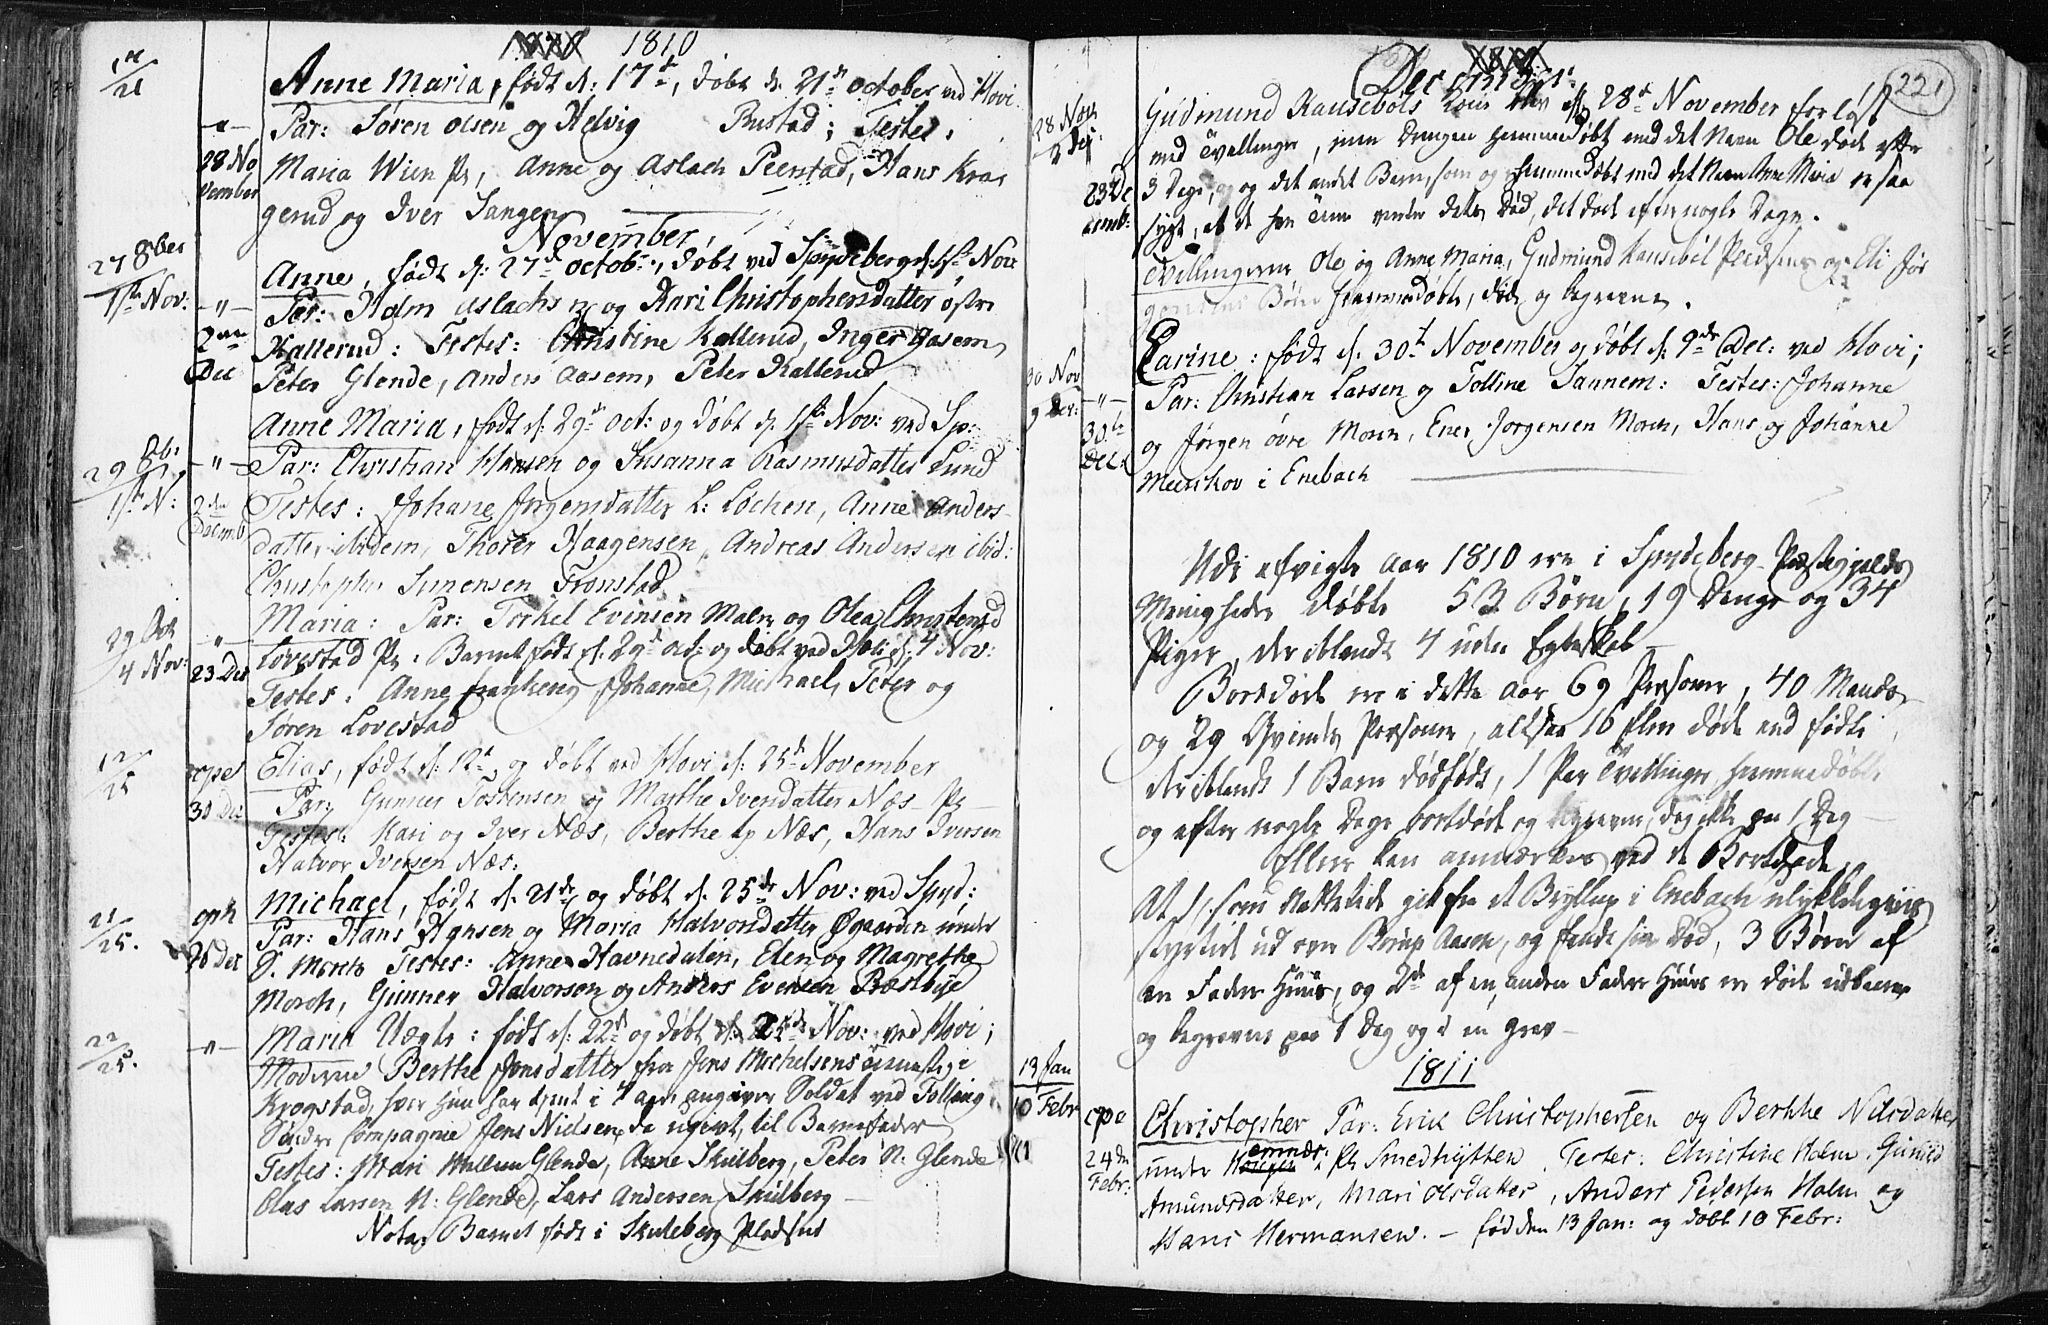 1810
17/21
Anne Maria, født d: 17de, døbt d. 21de october ved Hovi
Par: Søren Olsen og Helvig Rustad; Testes:
28 No
vember
Maria Wiin Pr, Anne og Aslach Peerstad, Hans Kra
gerud og Iver Langen
November
27 8ber
1ste Nov:
Anne, født d: 27de octob:, døbt ved Spydeberg d: 1ste Nov
Par: Holm Aslachsen og Kari Christophersdatter østre
2den
Dec
Kallerud: Testes: Christine Kallerud, Inger Aasem,
Peter Glende, Anders Aasem, Peter Kallerud
29 Ob:
1ste N:
Anne Maria, født d: 29de oct: og døbt d. 1ste Nov: ved Sp:
Par: Christian Hansen og Susanna Rasmusdatter Lund
2den
Decemb
Testes: Johane Jørgensdatter L: Løchen, Anne Anders-
datter ibidem, Thorer Haagensen, Andreas Andersen ibid:
Christopher Simensen Fronstad
29 Oct
4 Nov:
Maria: Par: Torkel Evinsen Malm og Olea Christensd
23 Dec
Løvestad Pr: Barnet født d: 29de oct: og døbt ved Hovi d: 4 Nov:
Testes: Anne Johanne, Michael, Peter og
Søren Lovestad
12/25
cpet
30 Dec
Elias, født d: 12te og døbt ved Hovi d: 25de November
Par: Gunner Tostensen og Marthe Iversdatter Næs Pr
Testes: Kari og Iver Næs, Berthe Næs, Hans Iversen
Halvor Iversen Næs:
21/25.
26 Dec
Michael, født d. 21de og døbt d. 25de Nov: ved Spyd:
Par: Hans Hansen og Maria Halvorsdatter Øgaarden under
S. Morck Testes: Anne Havnedalen, Elen og Magrethe
Morch, Gunner Halvorson og Anders Evensen Præstbye
22/25.
Maria Uægte: født d: 22de og døbt d: 25de Nov: ved Hovi;
Moderen Berthe Jonsdatter fra Jens Michelsens
Krogstad, hvor hun har tjent i Aar, angiver Soldat ved Follaug
Søndre Compagnie Jens Nielsen, da ugivt, til Barnefader
Testes: Mari Mellem Glende, Anne Skulberg, Peter N: Glende
Olas Larsen N: Glende, Lars Andersen Skulberg
Nota: Barnet født i Skuleberg Pladsen
221
December
28 Nov
2 Dec:
23 De
cemb:
Gudmund Kausebøls Kone blev d: 28de November forløst
med Tvillinger, een Drengen hiemmedøbt med det Navn Ole døde efter
3 Dage, og det andet Barn, som og hiemmedøbt med det Navn Anne Maria er saa
sygt, at de hver Time venter dets Død, det døde efter nogle Dage.
Tvillingerne Ole og Anne Maria, Gudmund Kausebøl Pladsens og Eli Jør
gensdatters Børn hiemmedøbt, døde og begravne.
30 Nov
9 Dec:
30te
Dec:
Carine: født d. 30te November og døbt d. 9de Dec: ved Hovi;
Par: Christian Larsen og Tolline Sannem: Testes: Johanne
og Jørgen øvre Moren, Ener Jorgensen Moren, Hans og Johanne
Meenskov i Enebach
Udi afvigte Aar 1810 ere i Spydeberg Præstegjelds
Menigheder døbte 53 Børn, 19 Drenge og 34
Piger, deriblandt 4 uden Egteskab
Bortdøde ere i dette Aar 69 Personer, 40 Mands-
og 29 Qvinde Personer, altsaa 16 flere døde end fødte,
deriblandt 1 Barn dødfødt, 1 Par Tvillinger hiemmedøbte
og efter nogle Dage bortdøde og begravne, dog ikke paa 1 Dag
Ellers kan anmærkes ved de Bortdøde
At 1, som Nattetide gik fra et Bryllup i Enebach ulykkeligviis
styrtede ud over Aasen, og fandt sin Død, 3 Børn af
en Faders Huus, og 2de af en anden Faders Huus ere døde
og begravne paa 1 Dag og i en Grav
1811
13 Jan
10 Febr
cpe
24de
Febr:
Christopher Par: Erik Christophersen og Berthe Nilsdatter
under Smedhytten. Testes: Christine Holm Gunild
Amundsdatter, Mari Olsdatter, Anders Pedersen Holm og
Hans Hermansen. – fød den 13 Jan: og døbt 10 Febr: